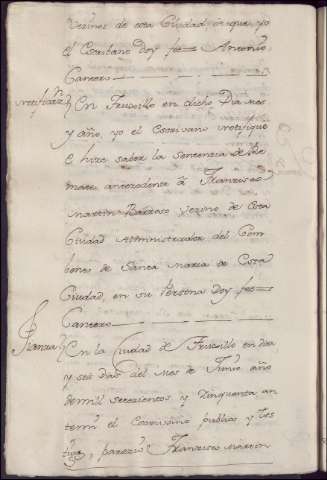 Vezinos de esta Ciudad, de que yo
el Escribano doy fee = Antonio
Cantero
Notificaz.n
En Truxillo en dicho Dia mes
y año, yo el Escrivano notifique
e hice saber la Sentencia de Re
mate antecedente á Francisco
Martin Barroso Vezino de esta
Ciudad Administrador del Com
bento de Santa Maria de esta
Ciudad, en su Persona doy fee =
Cantero
Fianza
En la Ciudad de Truxillo en diez
y seis dias del Mes de Junio año
de mil setecientos y Zinquenta an
te mi el Escrivano publico y tes
tigos, parecio Francisco Martin